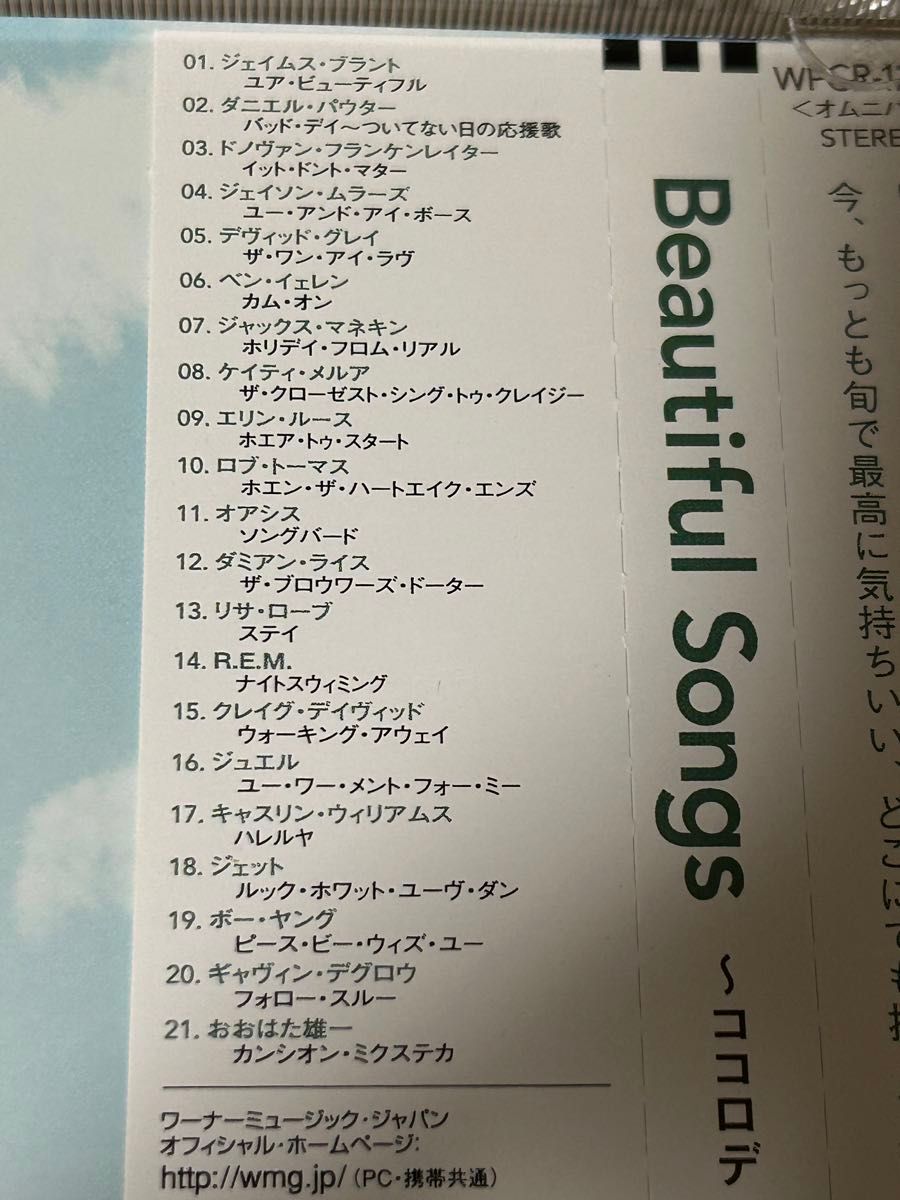 01. ジェイムス・ブラント
ユア・ビューティフル
02. ダニエル・パウター
バッド・デイ〜ついてない日の応援歌
03. ドノヴァン・フランケンレイター
イット・ドント・マター
04. ジェイソン・ムラーズ
ユー・アンド・アイ・ボース
05. デヴィッド・グレイ
ザ・ワン・アイ・ラヴ
06. ベン・イェレン
カム・オン
07. ジャックス・マネキン
ホリデイ・フロム・リアル
08. ケイティ・メルア
ザ・クローゼスト・シング・トゥ・クレイジー
09. エリン・ルース
ホエア・トゥ・スタート
10. ロブ・トーマス
ホエン・ザ・ハートエイク・エンズ
11. オアシス
ソングバード
12. ダミアン・ライス
ザ・ブロウワーズ・ドーター
13. リサ・ローブ
ステイ
14. R.E.M.
ナイトスウィミング
15. クレイグ・デイヴィッド
ウォーキング・アウェイ
16. ジュエル
ユー・ワー・メント・フォー・ミー
17. キャスリン・ウィリアムス
ハレルヤ
18. ジェット
ルック・ホワット・ユーヴ・ダン
19. ボー・ヤング
ピース・ビー・ウィズ・ユー
20. ギャヴィン・デグロウ
フォロー・スルー
21. おおはた雄一
カンシオン・ミクステカ
ワーナーミュージック・ジャパン
オフィシャル・ホームページ:
http://wmg.jp/ (PC・携帯共通)
Beautiful Songs 〜ココロデ
WPCR-12
<オムニバ
STERE
今、もっとも旬で最高に気持ちいい、どこにでも